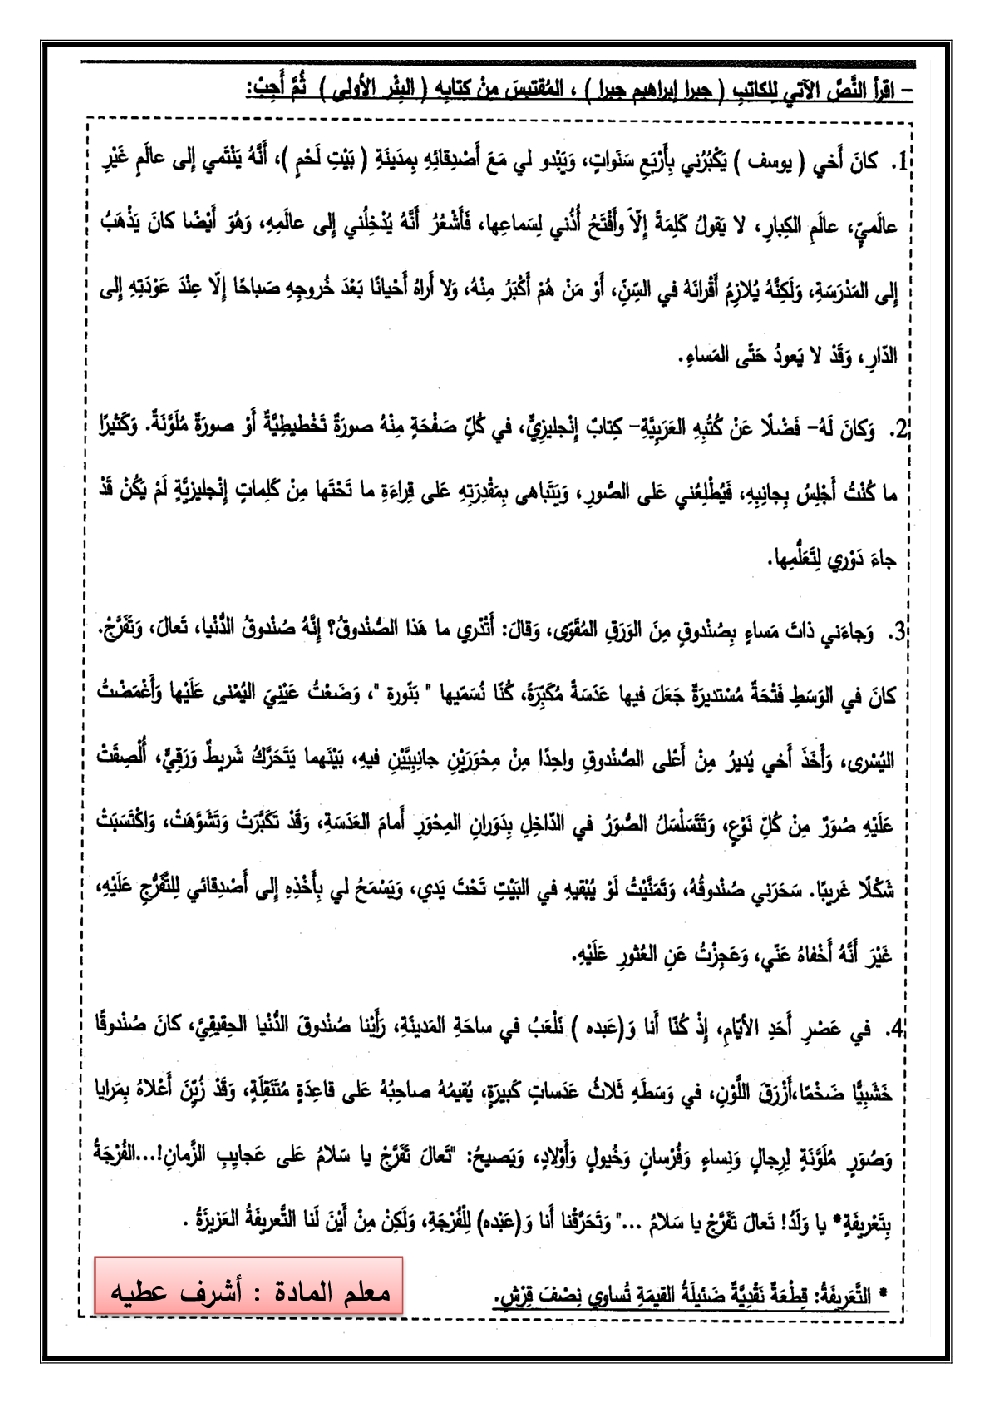 - اقرأ النَّصَّ الآتي لِلكاتبِ ( جبرا إبراهيم جبرا ) ، المُقتبسَ مِنْ كتابِه ( البِئر الأولى ) ثُمَّ أَجِبْ:
1. كانَ أَخي ( يوسف ) يَكْبُرُني بِأَرْبَعِ سَنَواتٍ، وَيَبْدو لي مَعَ أَصْدِقائِهِ بِمَدينَةِ ( بَيْتِ لَحْمٍ )، أَنَّهُ يَنْتَمي إلى عالَمٍ غَيْرِ
عالَمي، عالَمِ الكِبارِ، لا يَقولُ كَلِمَةً إلّا وَأَفْتَحُ أُذُني لِسَماعِها، فَأَشْعُرُ أَنَّهُ يُدْخِلُني إلى عالَمِهِ، وَهُوَ أَيْضًا كانَ يَذْهَبُ
إلى المَدْرَسَةِ، وَلَكِنَّهُ يُلازِمُ أَقْرانَهُ في السِّنِّ، أَوْ مَنْ هُمْ أَكْبَرُ مِنْهُ، وَلا أَراهُ أَحْيانًا بَعْدَ خُروجِهِ صَباحًا إلّا عِنْدَ عَوْدَتِهِ إلى
الدّارِ، وَقَدْ لا يَعودُ حَتّى المَساءِ.
2. وَكانَ لَهُ- فَضْلًا عَنْ كُتُبِهِ العَرَبِيَّةِ- كِتابٌ إنْجليزِيٌّ، في كُلِّ صَفْحَةٍ مِنْهُ صورَةٌ تَخْطيطِيَّةٌ أَوْ صورَةٌ مُلَوَّنَةٌ. وَكَثيرًا
ما كُنْتُ أَجْلِسُ بِجانِبِهِ، فَيُطْلِعُني عَلى الصُّورِ، وَيَتَباهى بِمَقْدِرَتِهِ عَلى قِراءَةِ ما تَحْتَها مِنْ كَلِماتٍ إنْجليزيَّةٍ لَمْ يَكُنْ قَدْ
جاءَ دَوْري لِتَعَلُّمِها.
3. وَجاءَني ذاتَ مَساءٍ بِصُنْدوقٍ مِنَ الوَرَقِ المُقَوّى، وَقالَ: أَتَدْري ما هَذا الصُّنْدوقُ؟ إنَّهُ صُنْدوقُ الدُّنْيا، تَعالَ، وَتَفَرَّجْ.
كانَ في الوَسَطِ فَتْحَةٌ مُسْتَديرَةٌ جَعَلَ فيها عَدَسَةً مُكَبِّرَةً، كُنّا نُسَمّيها " بَنّورة "، وَضَعْتُ عَيْنِيَ اليُمْنى عَلَيْها وَأَغْمَضْتُ
اليُسْرى، وَأَخَذَ أَخي يُديرُ مِنْ أَعْلى الصُّنْدوقِ واحِدًا مِنْ مِحْوَرَيْنِ جانِبِيَّيْنِ فيهِ، بَيْنَهما يَتَحَرَّكُ شَريطٌ وَرَقِيٌّ، أُلْصِقَتْ
عَلَيْهِ صُوَرٌ مِنْ كُلِّ نَوْعٍ، وَتَتَسَلْسَلُ الصُّوَرُ في الدّاخِلِ بِدَوَرانِ المِحْوَرِ أَمامَ العَدَسَةِ، وَقَدْ تَكَبَّرَتْ وَتَشَوَّهَتْ، وَاكْتَسَبَتْ
شَكْلًا غَريبًا. سَحَرَني صُنْدوقُهُ، وَتَمَنَّيْتُ لَوْ يُبْقيهِ في البَيْتِ تَحْتَ يَدي، وَيَسْمَحُ لي بِأَخْذِهِ إلى أَصْدِقائي لِلتَّفَرُّجِ عَلَيْهِ،
غَيْرَ أَنَّهُ أَخْفاهُ عَنّي، وَعَجِزْتُ عَنِ العُثورِ عَلَيْهِ.
4. في عَصْرِ أَحَدِ الأيّامِ، إذْ كُنّا أَنا وَ(عَبده ) نَلْعَبُ في ساحَةِ المَدينَةِ، رَأَيْنا صُنْدوقَ الدُّنْيا الحَقيقِيَّ، كانَ صُنْدوقًا
خَشَبِيًّا ضَخْمًا،أَزْرَقَ اللَّوْنِ، في وَسَطِهِ ثَلاثُ عَدَساتٍ كَبيرَةٍ، يُقيمُهُ صاحِبُهُ عَلى قاعِدَةٍ مُتَنَقِلَةٍ، وَقَدْ زُيِّنَ أَعْلاهُ بِمَرايا
وَصُوَرٍ مُلَوَّنَةٍ لِرِجالٍ وَنِساءٍ وَفُرْسانٍ وَخُيولٍ وَأَوْلادٍ، وَيَصيحُ: "تَعالَ تَفَرَّجْ يا سَلامُ عَلى عَجايِبِ الزَّمانِ!...الفُرْجَةُ
بِتَعْريفَةٍ* يا وَلَدُ! تَعالَ تَفَرَّجْ يا سَلامُ ..." وَتَحَرَّقْنا أَنا وَ(عَبْده) لِلْفُرْجَةِ، وَلَكِنْ مِنْ أَيْنَ لَنا التَّعريفَةُ العَزيزَةُ .
* التَّعَريفَةُ: قِطْعَةٌ نَقْدِيَّةٌ ضَئيلَةُ القيمَةِ تُساوي نِصْفَ قِرْشٍ.
معلم المادة : أشرف عطيه